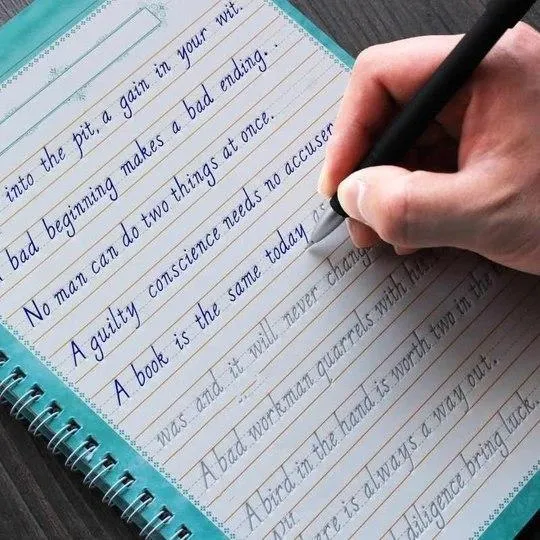 into the pit, a gain in your wit.
bad beginning makes a bad ending.
No man can do two things at once.
A guilty conscience needs no accuser
A book is the same today
was and it will never chang
A bad workman quarrels with his
A bird in the hand is worth two in the
ere is always a way out.
diligence bring luck.